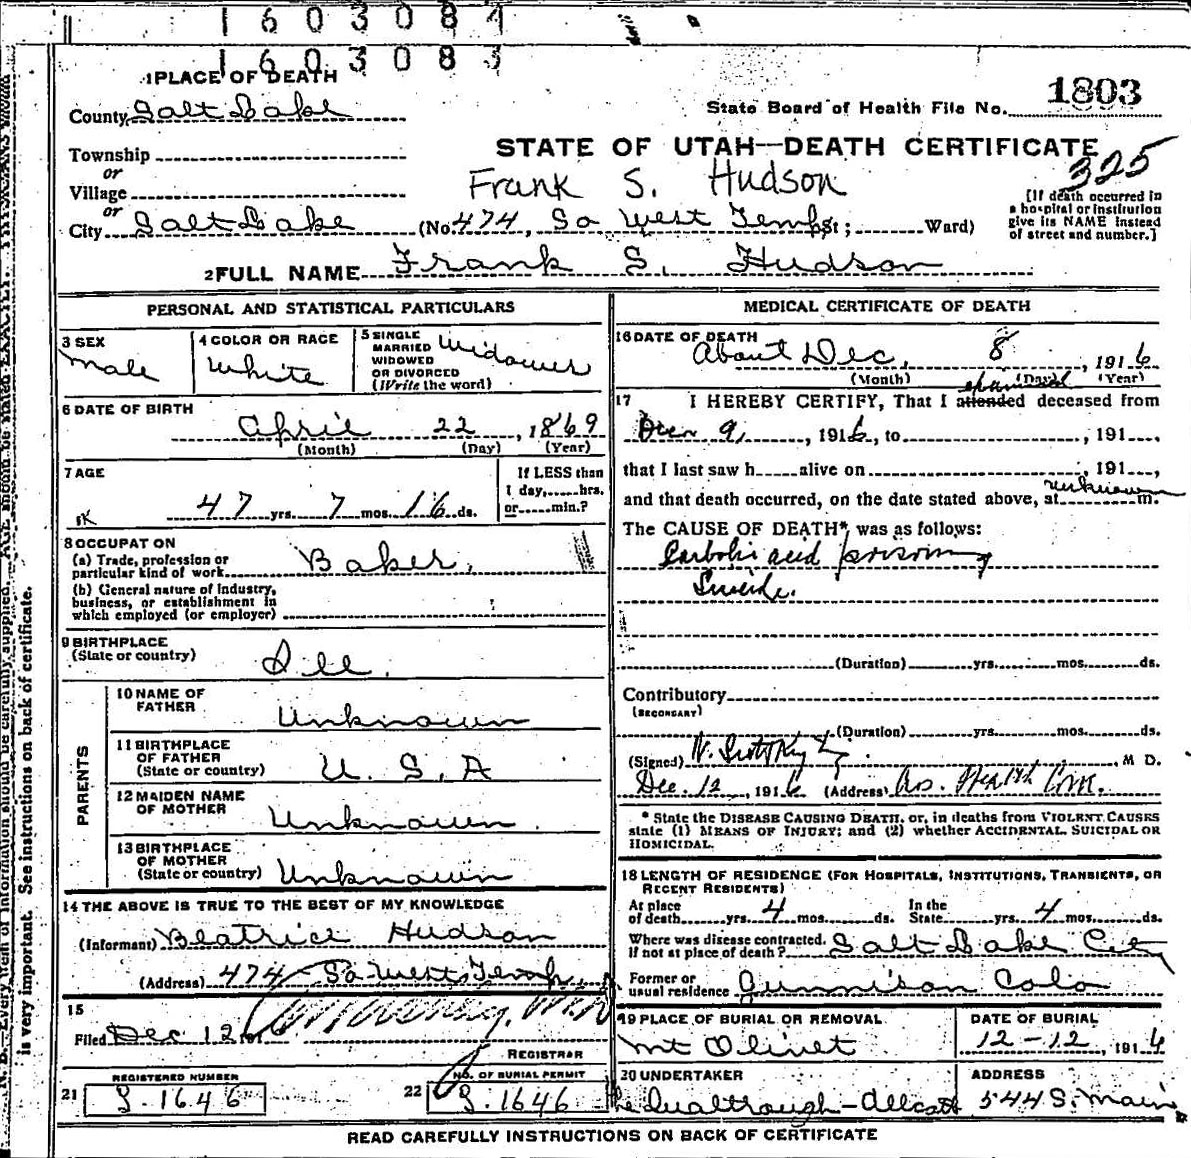 1603084
1603083
1 PLACE OF DEATH
County Salt Lake
State Board of Health File No. 1803
Township
or
Village
or
City Salt Lake
STATE OF UTAH—DEATH CERTIFICATE
325
Frank S. Hudson
(No. 474, So West Temp St; Ward)
[If death occurred in
a hospital or institution
give its NAME instead
of street and number.]
2 FULL NAME Frank S. Hudson
PERSONAL AND STATISTICAL PARTICULARS
3 SEX
Male
4 COLOR OR RACE
White
5 SINGLE
MARRIED
WIDOWED
OR DIVORCED
(Write the word)
Widower
6 DATE OF BIRTH
April 22, 1869
(Month) (Day) (Year)
7 AGE
47 yrs. 7 mos. 16 ds.
If LESS than
1 day, hrs.
or min.?
8 OCCUPATION
(a) Trade, profession or
particular kind of work Baker.
(b) General nature of Industry,
business, or establishment in
which employed (or employer)
9 BIRTHPLACE
(State or country) Ill.
PARENTS
10 NAME OF
FATHER Unknown
11 BIRTHPLACE
OF FATHER
(State or country) U. S. A
12 MAIDEN NAME
OF MOTHER Unknown
13 BIRTHPLACE
OF MOTHER
(State or country) Unknown
14 THE ABOVE IS TRUE TO THE BEST OF MY KNOWLEDGE
(Informant) Beatrice Hudson
(Address) 474 So West Temp
15
Filed Dec 12 1916
REGISTRAR
21 REGISTERED NUMBER
S. 1646
22 NO. OF BURIAL PERMIT
S. 1646
MEDICAL CERTIFICATE OF DEATH
16 DATE OF DEATH
About Dec. 8, 1916
(Month) (Day) (Year)
17 I HEREBY CERTIFY, That I attended examined deceased from
Dec 9, 1916, to , 191 ,
that I last saw h alive on , 191 ,
and that death occurred, on the date stated above, at unknown m.
The CAUSE OF DEATH* was as follows:
Carbolic acid poisoning
Suicide.
(Duration) yrs. mos. ds.
Contributory
(SECONDARY)
(Duration) yrs. mos. ds.
(Signed) M D.
Dec. 12, 1916 (Address) Health Com.
* State the DISEASE CAUSING DEATH, or, in deaths from VIOLENT CAUSES
state (1) MEANS OF INJURY; and (2) whether ACCIDENTAL, SUICIDAL OR
HOMICIDAL.
18 LENGTH OF RESIDENCE (FOR HOSPITALS, INSTITUTIONS, TRANSIENTS, OR
RECENT RESIDENTS)
At place
of death yrs. 4 mos. ds.
In the
State yrs. 4 mos. ds.
Where was disease contracted.
If not at place of death? Salt Lake City
Former or
usual residence Gunnison Colo
19 PLACE OF BURIAL OR REMOVAL
Mt Olivet
DATE OF BURIAL
12-12, 1916
20 UNDERTAKER
ADDRESS
544 S. Main
READ CAREFULLY INSTRUCTIONS ON BACK OF CERTIFICATE
N. B.—Every item of information should be carefully supplied. AGE should be stated EXACTLY. PHYSICIANS should
is very important. See instructions on back of certificate.